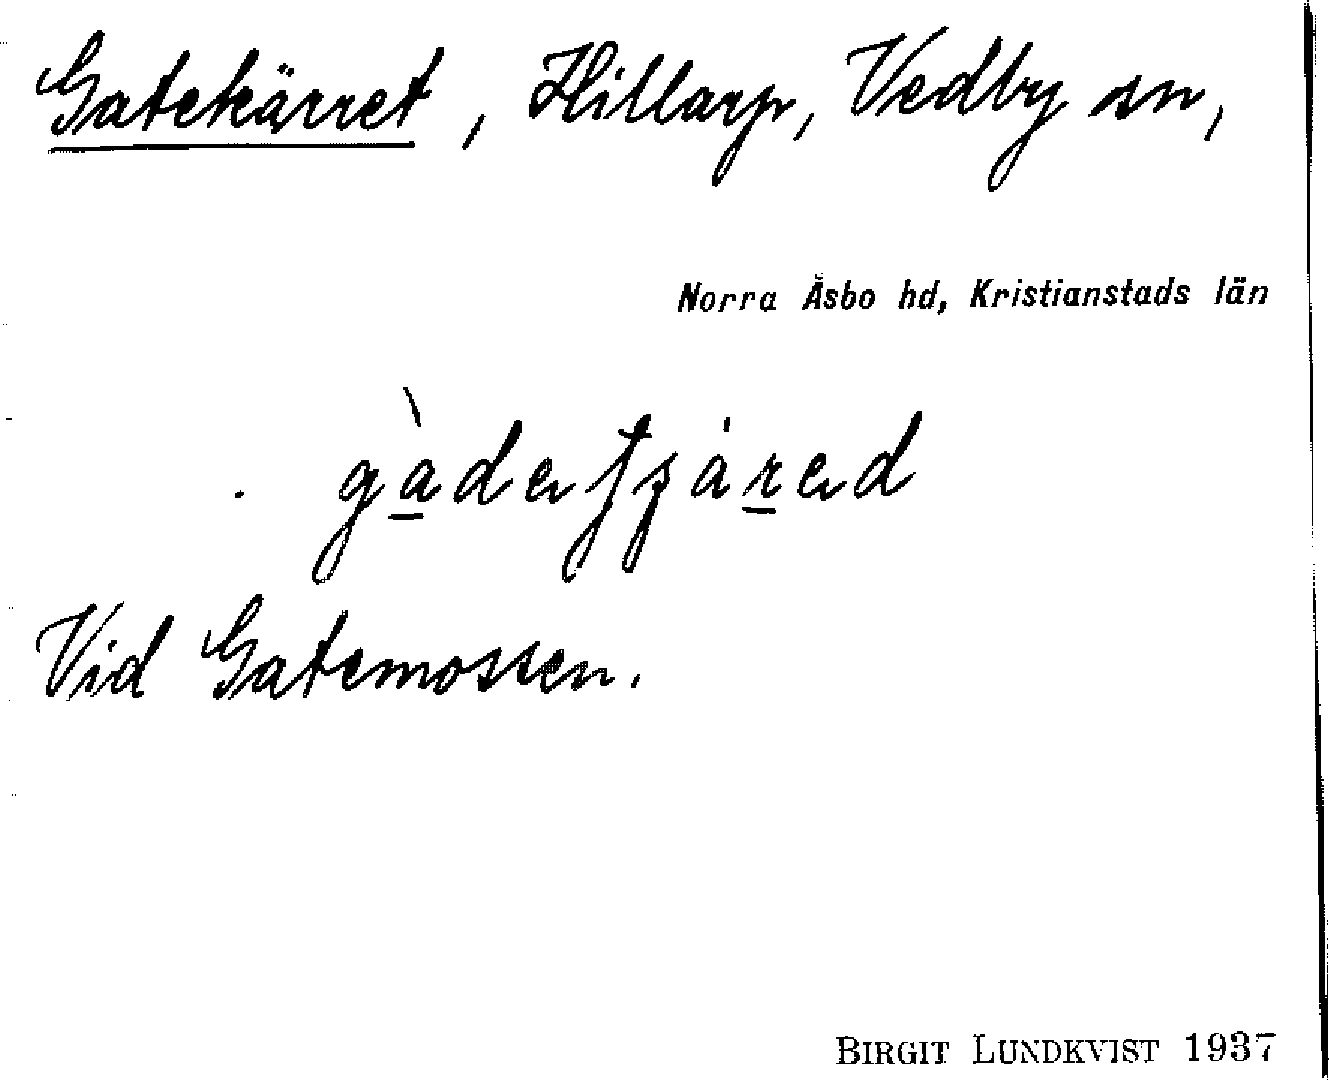 Gatekärret, Hillarp, Vedby sn,
Norra Åsbo hd, Kristianstads län
Vid Gatemossen.
BIRGIT LUNDKVIST 1937